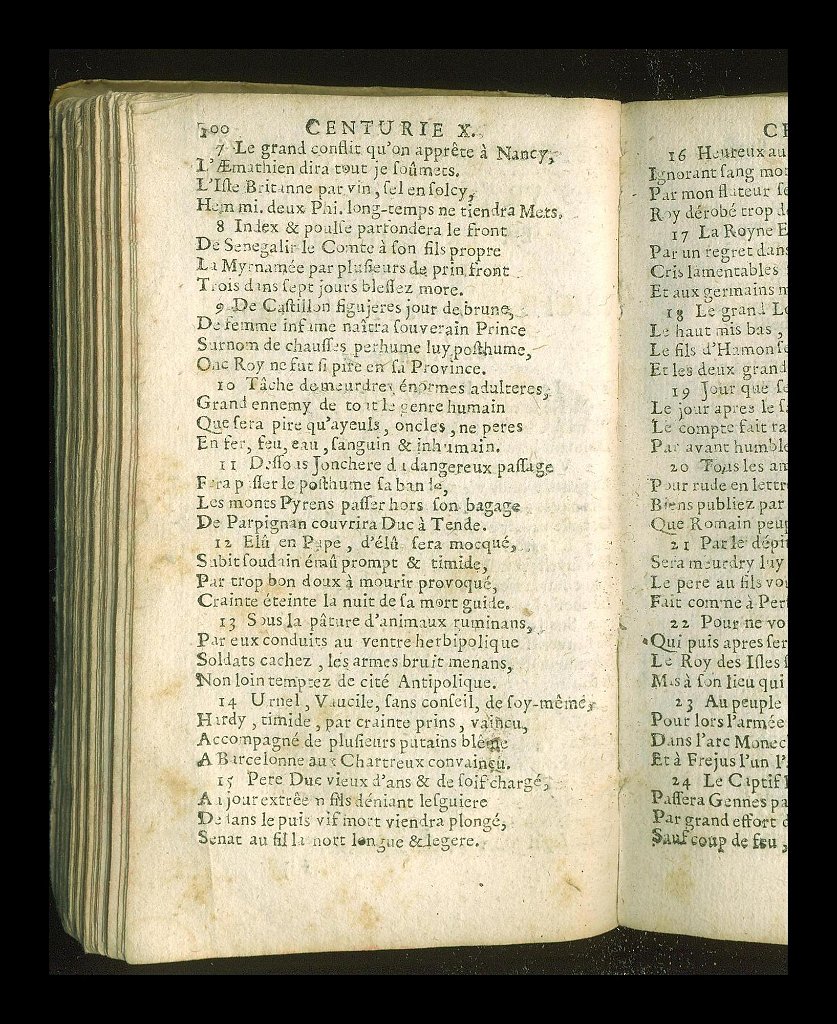 300 CENTURIE X.
7 Le grand conflit qu'on apprête à Nancy,
L'Æmathien dira tout je soûmets.
L'Isle Britanne par vin, sel en solcy,
Hem mi. deux Phi. long-temps ne tiendra Mets.
8 Index & poulse parfondera le front
De Senegalie le Comte à son fils propre
La Myrnamée par plusieurs de prin front
Trois dans sept jours blessez more.
9 De Castillon figujeres jour de brune,
De femme infame naîtra souverain Prince
Surnom de chausses perhume luy posthume,
Onc Roy ne fut si pire en sa Province.
10 Tâche de meurdres énormes adulteres,
Grand ennemy de tout le genre humain
Que sera pire qu'ayeuls, oncles, ne peres
En fer, feu, eau, sanguin & inhumain.
11 Dessous Jonchere du dangereux passage
Fera passer le posthume sa bande,
Les monts Pyrens passer hors son bagage
De Parpignan couvrira Duc à Tende.
12 Elû en Pape, d'élû sera mocqué,
Subit soudain émû prompt & timide,
Par trop bon doux à mourir provoqué,
Crainte éteinte la nuit de sa mort guide.
13 Sous la pâture d'animaux ruminans,
Par eux conduits au ventre herbipolique
Soldats cachez, les armes bruit menans,
Non loin temptez de cité Antipolique.
14 Urnel, Vaucile, sans conseil, de soy-même,
Hardy, timide, par crainte prins, vaincu,
Accompagné de plusieurs putains blême
A Barcelonne aux Chartreux convaincu.
15 Pere Duc vieux d'ans & de soif chargé,
Au jour extrême fils déniant lesguiere
Dedans le puis vif mort viendra plongé,
Senat au fil la mort longue & legere.
16 Heureux au
Ignorant sang
Par mon flateur
Roy dérobé trop
17 La Royne
Par un regret dans
Cris lamentables
Et aux germains
18 Le grand
Le haut mis bas,
Le fils d'Hamon
Et les deux grand
19 Jour que
Le jour apres le
Le compte fait
Par avant humble
20 Tous les
Pour rude en
Biens publiez par
Que Romain
21 Par le
Sera meurdry luy
Le pere au fils
Fait comme à
22 Pour ne
Qui puis apres
Le Roy des Isles
Mis à son lieu qui
23 Au peuple
Pour lors l'armée
Dans l'arc
Et à Frejus l'un
24 Le Captif
Passera Gennes
Par grand effort
Sauf coup de feu,